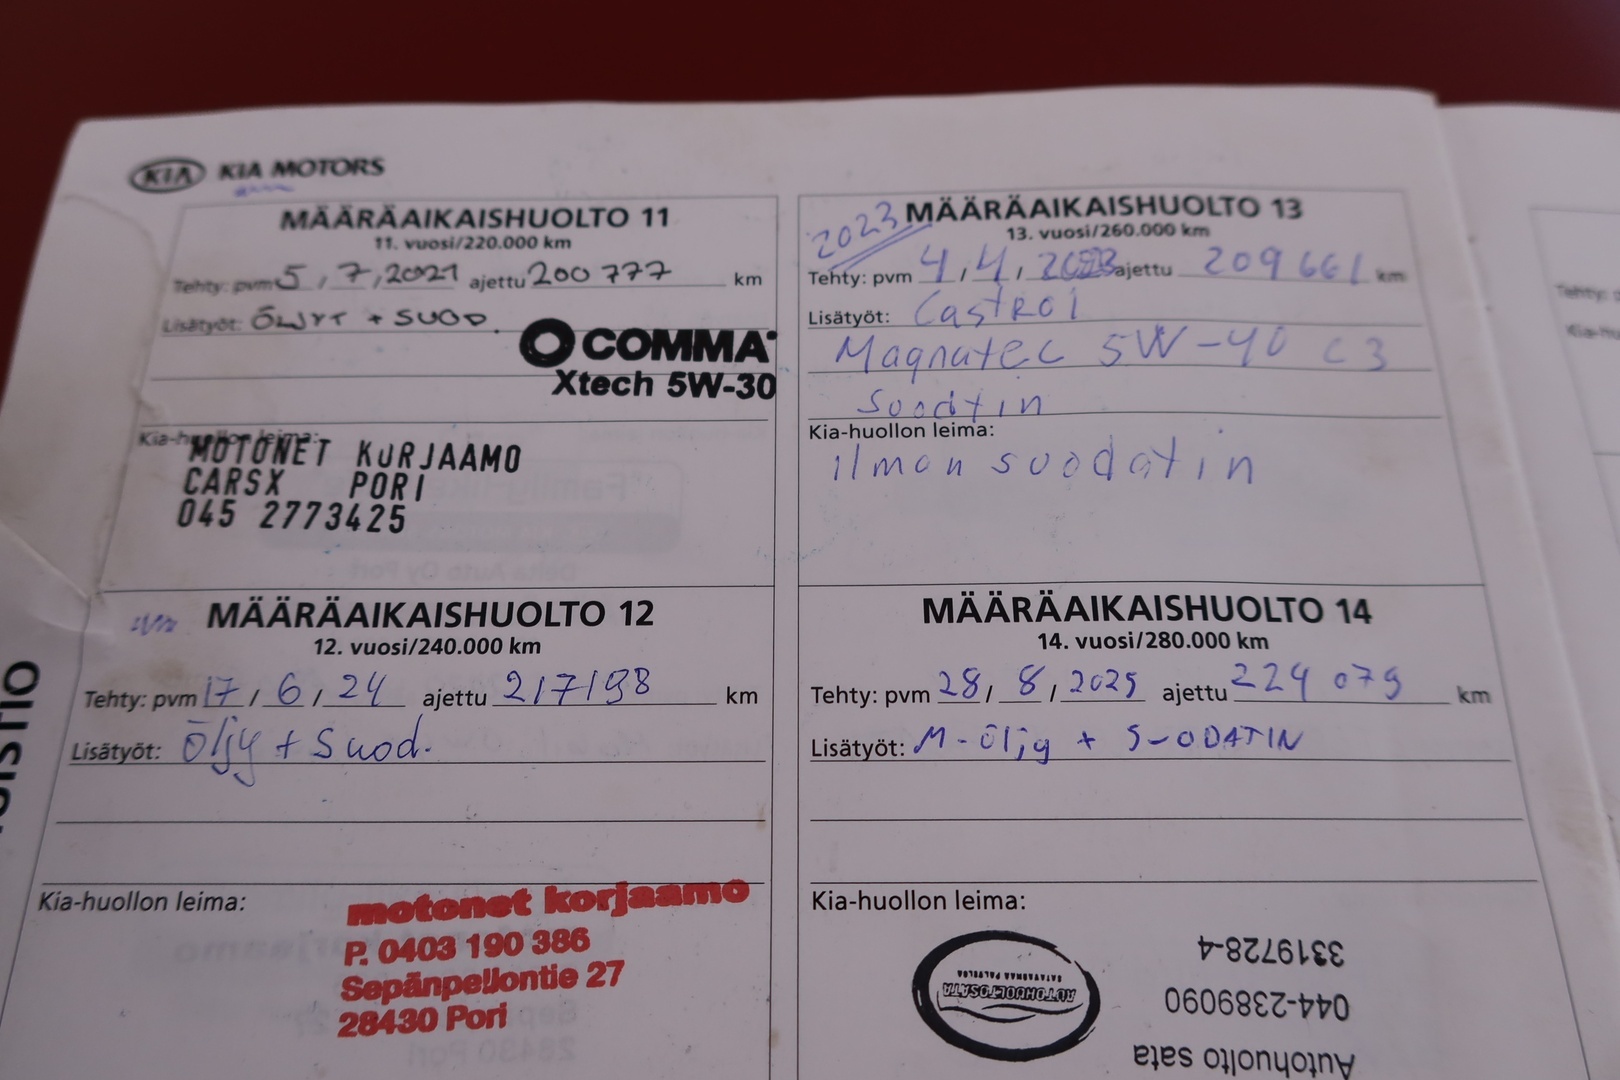 KIA KIA MOTORS
MÄÄRÄAIKAISHUOLTO 11
11. vuosi/220.000 km
Tehty: pvm 5 / 7 / 2021 ajettu 200 777 km
Lisätyöt: ÖLJYT + SUOD.
COMMA
Xtech 5W-30
Kia-huollon leima:
MOTONET KORJAAMO
CARSX PORI
045 2773425
MÄÄRÄAIKAISHUOLTO 12
12. vuosi/240.000 km
Tehty: pvm 17 / 6 / 24 ajettu 217198 km
Lisätyöt: Öljy + Suod.
Kia-huollon leima:
motonet korjaamo
P. 0403 190 386
Sepänpellontie 27
28430 Pori
2023
MÄÄRÄAIKAISHUOLTO 13
13. vuosi/260.000 km
Tehty: pvm 4 / 4 / 2023 ajettu 209661 km
Lisätyöt: Castrol
Magnatec 5W-40 C3
Suodtin
Kia-huollon leima:
ilman suodatin
MÄÄRÄAIKAISHUOLTO 14
14. vuosi/280.000 km
Tehty: pvm 28 / 8 / 2025 ajettu 224 079 km
Lisätyöt: M-öljy + SUODATIN
Kia-huollon leima:
Autohuolto sata
044-2389090
3319728-4
AUTOHUOLTOSATA
SATAVARMAA PALVELUA